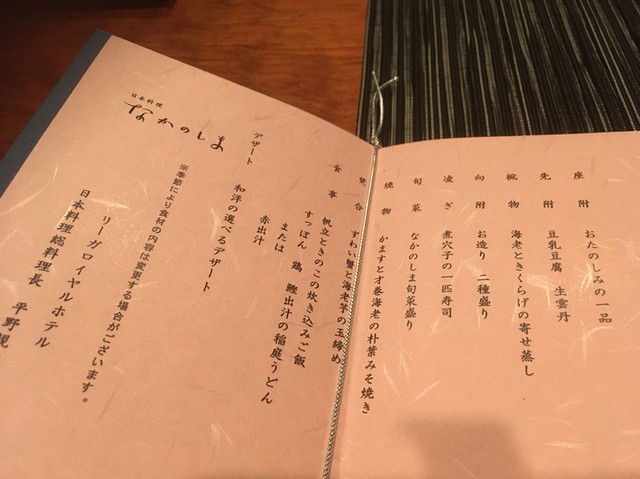 座附 おたのしみの一品
先附 豆乳豆腐 生雲丹
椀物 海老ときくらげの寄せ蒸し
向附 お造り 二種盛り
凌ぎ 煮穴子の一匹寿司
旬菜 なかのしま旬菜盛り
焼物 かますと才巻海老の朴葉みそ焼き
焚合 ずわい蟹と海老芋の玉締め
食事 帆立ときのこの炊き込みご飯
または
すっぽん 鶏 鰹出汁の稲庭うどん
赤出汁
デザート 和洋の選べるデザート
※季節により食材の内容は変更する場合がございます。
日本料理
なかのしま
リーガロイヤルホテル
日本料理総料理長 平野